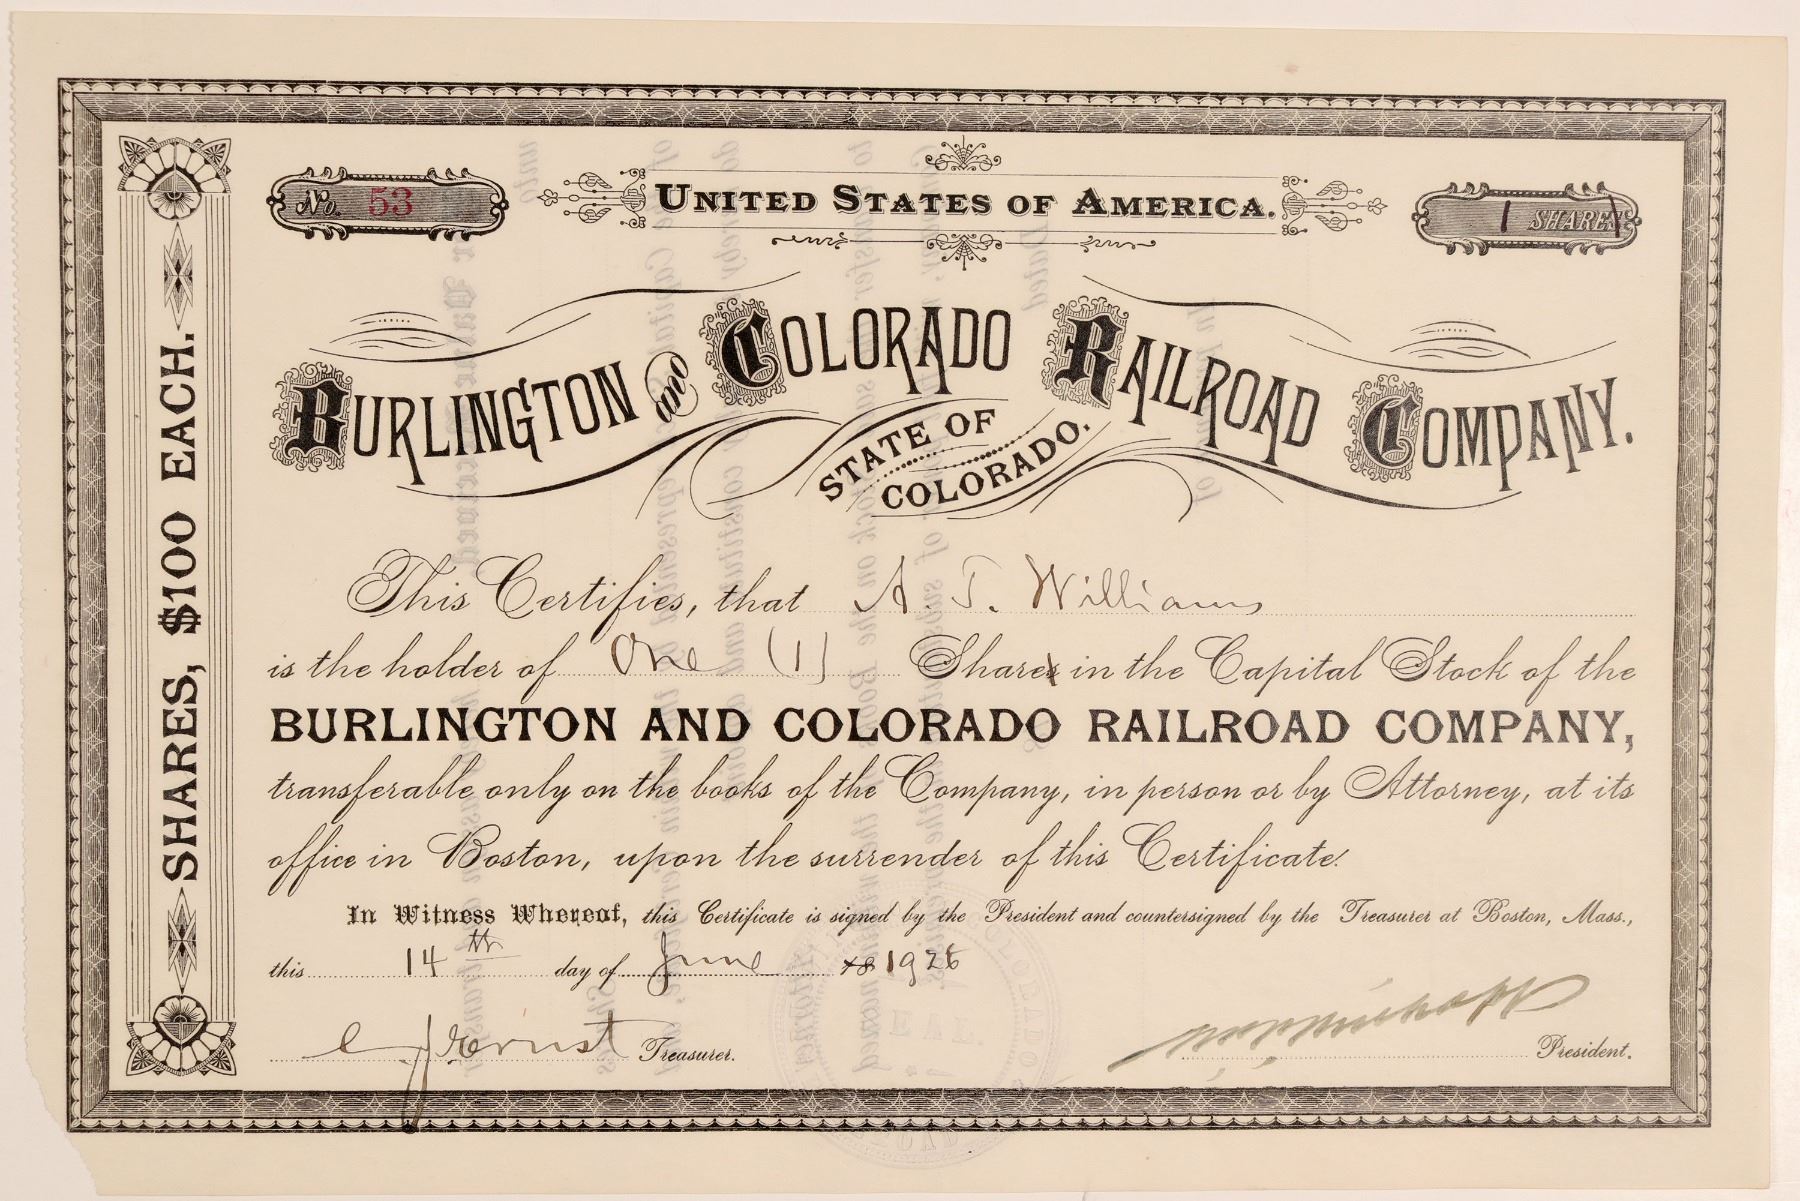 No. 53
UNITED STATES OF AMERICA.
1 SHARE
BURLINGTON AND COLORADO RAILROAD COMPANY.
STATE OF
COLORADO.
SHARES, $100 EACH.
This Certifies, that A. T. Williams
is the holder of One (1) Shares in the Capital Stock of the
BURLINGTON AND COLORADO RAILROAD COMPANY,
transferable only on the books of the Company, in person or by Attorney, at its
office in Boston, upon the surrender of this Certificate.
In Witness Whereof, this Certificate is signed by the President and countersigned by the Treasurer at Boston, Mass.,
this 14th day of June 18 1926
C J Ernst Treasurer.
President.